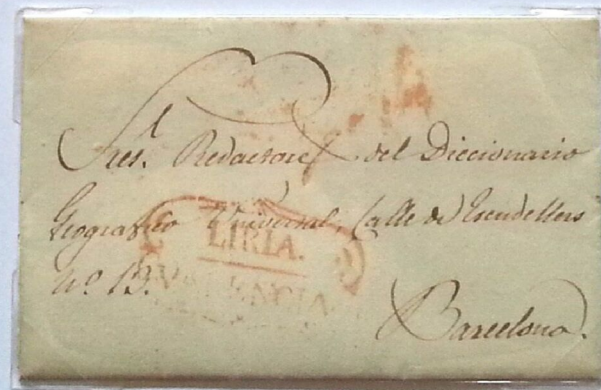 Sres. Redactores del Diccionario
Geografico Universal, Calle de Escudellers
Nº 13.
LIRIA.
VALENCIA
Barcelona.